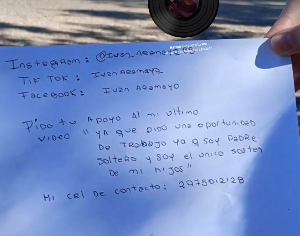 Instagram: @Ivan
Tik Tok: Ivan Aramayo
Facebook: Ivan Aramayo
Pido tu apoyo al mi ultimo
video " ya que pido una oportunidad
de trabajo ya q soy padre
soltero y soy el unico sosten
de mi hijos"
Mi cel de contacto: 2975012128